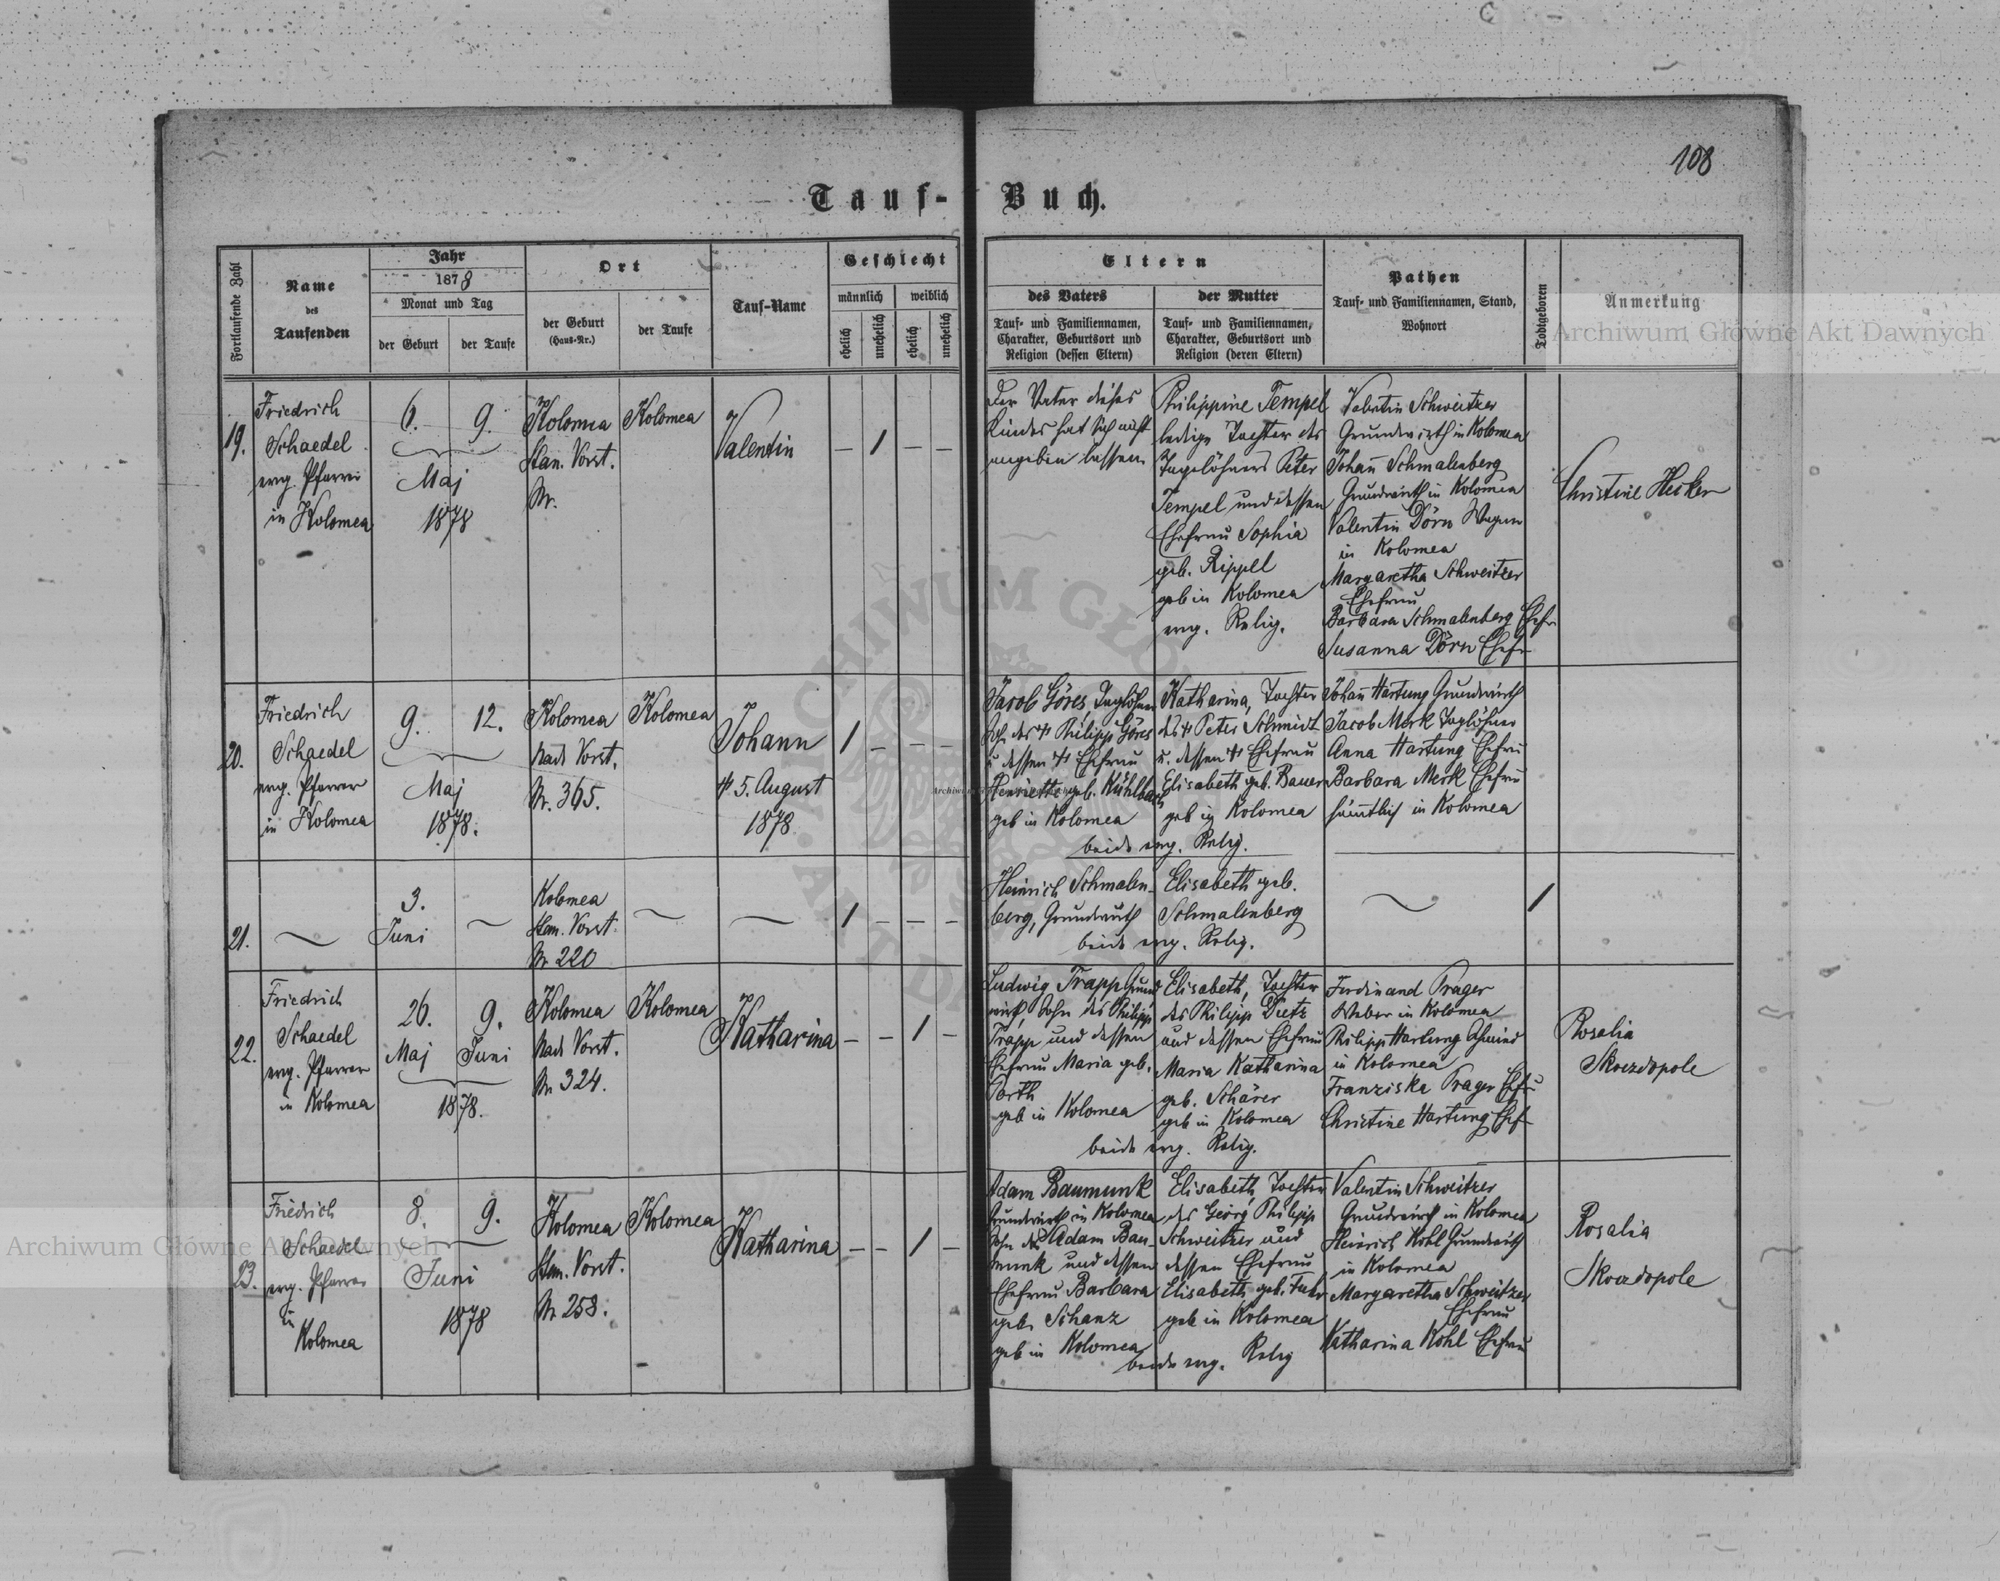 108
Tauf-Buch.
Fortlaufende Zahl
Name
des
Taufenden
Jahr
1878
Monat und Tag
der Geburt
der Taufe
Ort
der Geburt
(Haus-Nr.)
der Taufe
Tauf-Name
Geschlecht
männlich
weiblich
ehelich
unehelich
ehelich
unehelich
Eltern
des Vaters
Tauf- und Familiennamen,
Charakter, Geburtsort und
Religion (dessen Eltern)
der Mutter
Tauf- und Familiennamen,
Charakter, Geburtsort und
Religion (deren Eltern)
Pathen
Tauf- und Familiennamen, Stand,
Wohnort
Todtgeboren
Anmerkung
19.
Friedrich
Schaedel
evg. Pfarrer
in Kolomea
6. 9.
Maj
1878
Kolomea
Stan. Vorst.
Nr.
Kolomea
Valentin
— 1 — —
Der Vater dieses
Kindes hat sich nicht
angeben lassen
Philippine Tempel
ledige Tochter des
Tagelöhners Peter
Tempel und dessen
Ehefrau Sophia
geb. Rippel
geb in Kolomea
evg. Relig.
Valentin Schweitzer
Grundwirth in Kolomea
Johann Schmalenberg
Grundwirth in Kolomea
Valentin Dörn
in Kolomea
Margaretha Schweitzer
Ehefrau
Barbara Schmalenberg Ehefr
Susanna Dörn Ehefr
Christine Hecker
20.
Friedrich
Schaedel
evg. Pfarrer
in Kolomea
9. 12.
Maj
1878.
Kolomea
Nad. Vorst.
Nr. 365.
Kolomea
Johann
† 5. August
1878
1 — — —
Jacob Göres Taglöhner
Sohn des † Philipp Göres
u dessen † Ehefrau
Henriette geb. Kühlbach
geb in Kolomea
Katharina, Tochter
des † Peter Schmidt
u. dessen † Ehefrau
Elisabeth geb. Bauer
geb in Kolomea
beide evg. Relig.
Johann Hartung Grundwirth
Jacob Merk Taglöhner
Anna Hartung Ehefrau
Barbara Merk Ehefrau
sämtlich in Kolomea
21.
3.
Juni
Kolomea
Stan. Vorst.
Nr 220
1 — — —
Heinrich Schmalen-
berg, Grundwirth
Elisabeth geb.
Schmalenberg
beide evg. Relig.
1
22.
Friedrich
Schaedel
evg. Pfarrer
in Kolomea
26. 9.
Maj Juni
1878.
Kolomea
Nad. Vorst.
Nr 324.
Kolomea
Katharina
— — 1 —
Ludwig Trapp Grund
wirth, Sohn des Philipp
Trapp und dessen
Ehefrau Maria geb.
Porth
geb in Kolomea
Elisabeth, Tochter
des Philipp Dietz
und dessen Ehefrau
Maria Katharina
geb. Schärer
geb in Kolomea
beide evg. Relig.
Ferdinand Prager
Weber in Kolomea
Philipp Hartung Schmied
in Kolomea
Franziska Prager Ehefr
Christine Hartung Ehef
Rosalia
Skozdopole
23.
Friedrich
Schaedel
evg. Pfarrer
in
Kolomea
8. 9.
Juni
1878
Kolomea
Stan. Vorst.
Nr 258.
Kolomea
Katharina
— — 1 —
Adam Baumunk
Grundwirth in Kolomea
Sohn des Adam Bau-
munk und dessen
Ehefrau Barbara
geb. Schanz
geb in Kolomea
Elisabeth, Tochter
des Georg Philipp
Schweitzer und
dessen Ehefrau
Elisabeth geb.
geb in Kolomea
beide evg. Relig
Valentin Schweitzer
Grundwirth in Kolomea
Heinrich Kohl Grundwirth
in Kolomea
Margaretha Schweitzer
Ehefrau
Katharina Kohl Ehefrau
Rosalia
Skozdopole
Archiwum Główne Akt Dawnych
Archiwum Główne Akt Dawnych